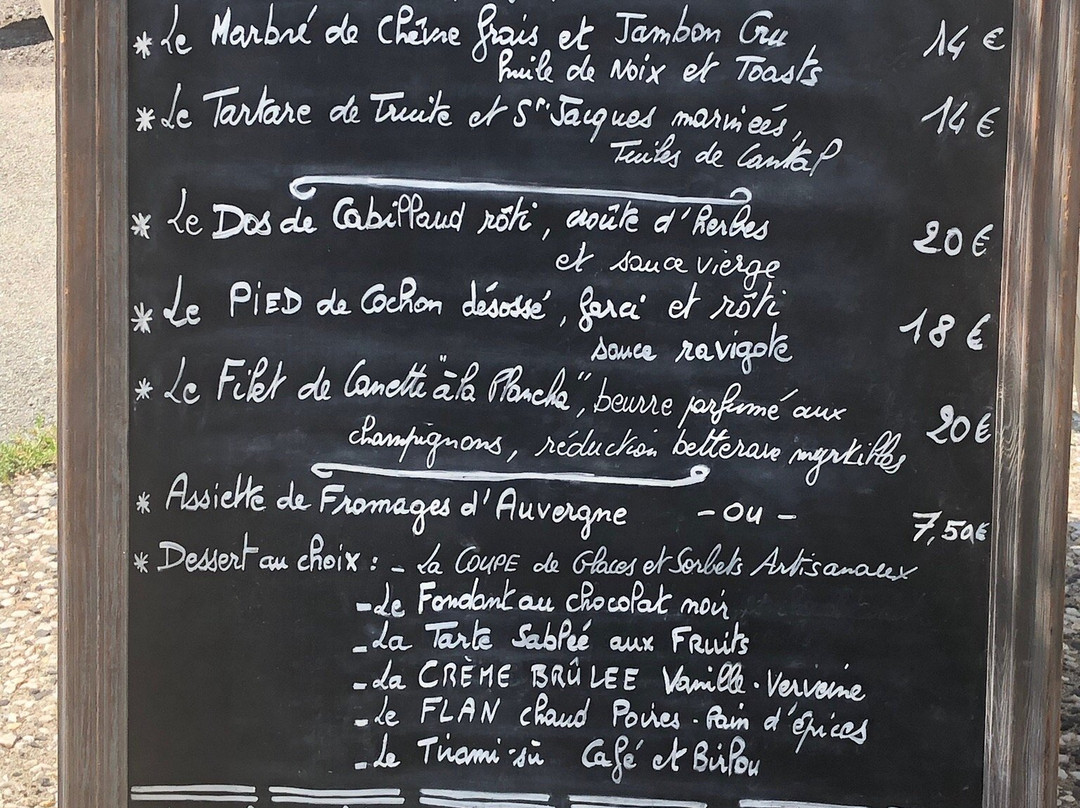 * Le Marbré de Chèvre frais et Jambon Cru 14 €
huile de Noix et Toasts
* Le Tartare de Truite et St Jacques marinées, 14 €
Tuiles de Cantal
* Le Dos de Cabillaud rôti, croûte d'herbes
et sauce vierge 20 €
* Le PIED de Cochon désossé, farci et rôti 18 €
sauce ravigote
* Le Filet de Canette "à la Plancha", beurre parfumé aux 20 €
champignons, réduction betterave myrtilles
* Assiette de Fromages d'Auvergne - ou - 7,50€
* Dessert au choix : - La COUPE de Glaces et Sorbets Artisanaux
- Le Fondant au chocolat noir
- La Tarte Sablée aux FRUITS
- La CRÈME BRÛLEE Vanille - Verveine
- Le FLAN chaud Poires - Pain d'épices
- Le Tirami-sù Café et Birlou